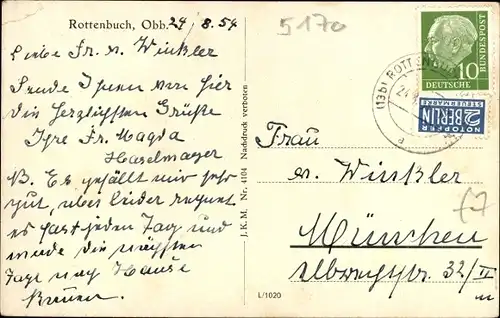 Rottenbuch, Obb. 24/8.54
5170
Liebe Fr. v. Winkler
Sende Ihnen von hier
die herzlichsten Grüße
Ihre Fr. Magda
Haselmayer
B. Es gefällt mir sehr
gut, aber leider regnet
es fast jeden Tag und
werde die nächsten
Tage nach Hause
kommen.
J.K.M. Nr. 4104 Nachdruck verboten
L/1020
(13b) ROTTENBUCH
24.8.
a
10
DEUTSCHE
BUNDESPOST
NOTOPFER
2 BERLIN
STEUERMARKE
Frau
v. Winkler
München
Albrechtstr. 32/II